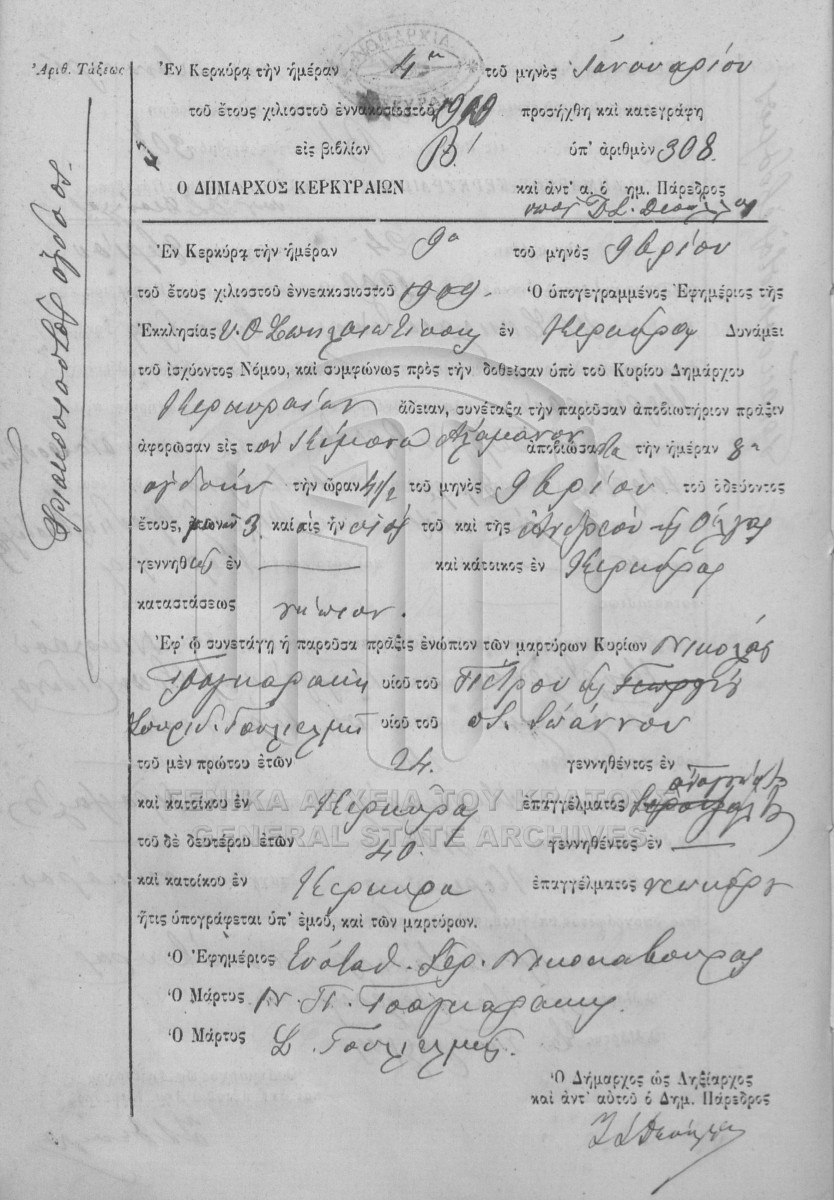 Ἀριθ. Τάξεως
Τριακοσιοστὸς ὄγδοος.
ΝΟΜΑΡΧΙΑ
Ἐν Κερκύρᾳ τὴν ἡμέραν 4ην τοῦ μηνὸς Ἰανουαρίου
τοῦ ἔτους χιλιοστοῦ ἐννακοσιοστοῦ 1910 προσήχθη καὶ κατεγράφη
εἰς βιβλίον Β' ὑπ' ἀριθμὸν 308.
Ο ΔΗΜΑΡΧΟΣ ΚΕΡΚΥΡΑΙΩΝ καὶ ἀντ' α. ὁ δημ. Πάρεδρος
Ἐν Κερκύρᾳ τὴν ἡμέραν 9η τοῦ μηνὸς 9βρίου
τοῦ ἔτους χιλιοστοῦ ἐννεακοσιοστοῦ 1909. Ὁ ὑπογεγραμμένος Ἐφημέριος τῆς
Ἐκκλησίας Υ. Θ. Σπηλαιωτίσσης ἐν Κερκύρᾳ Δυνάμει
τοῦ ἰσχύοντος Νόμου, καὶ συμφώνως πρὸς τὴν δοθεῖσαν ὑπὸ τοῦ Κυρίου Δημάρχου
Κερκυραίων ἄδειαν, συνέταξα τὴν παροῦσαν ἀποβιωτήριον πρᾶξιν
ἀφορῶσαν εἰς τὸν Κίμωνα ἀποβιώσαντα τὴν ἡμέραν 8η
ὀγδόην τὴν ὥραν 4 1/2 τοῦ μηνὸς 9βρίου τοῦ ὁδεύοντος
ἔτους, μηνῶν 3 καὶ εἰς ἦν υἱὸς τοῦ καὶ τῆς Ἀνδρέου καὶ Ὄλγας
γεννηθεὶς ἐν — καὶ κάτοικος ἐν Κερκύρᾳ
καταστάσεως νήπιον.
Ἐφ' ᾧ συνετάγη ἡ παροῦσα πρᾶξις ἐνώπιον τῶν μαρτύρων Κυρίων Νικολάου
Τσαγκαράκη υἱοῦ τοῦ Πέτρου καὶ Γεωργίου
Σπυρίδ. Γουλιέλμης υἱοῦ τοῦ Ἰωάννου
τοῦ μὲν πρώτου ἐτῶν 24. γεννηθέντος ἐν
καὶ κατοίκου ἐν Κερκύρᾳ ἐπαγγέλματος
τοῦ δὲ δευτέρου ἐτῶν 40. γεννηθέντος ἐν —
καὶ κατοίκου ἐν Κερκύρᾳ ἐπαγγέλματος νεωκόρου
ἥτις ὑπογράφεται ὑπ' ἐμοῦ, καὶ τῶν μαρτύρων.
Ὁ Ἐφημέριος Εὐσταθ. Ἱερ. Νικοκάβουρας
Ὁ Μάρτυς Ν. Π. Τσαγκαράκης.
Ὁ Μάρτυς Σ. Γουλιέλμης.
Ὁ Δήμαρχος ὡς Ληξίαρχος
καὶ ἀντ' αὐτοῦ ὁ Δημ. Πάρεδρος
ΓΕΝΙΚΑ ΑΡΧΕΙΑ ΤΟΥ ΚΡΑΤΟΥΣ
GENERAL STATE ARCHIVES